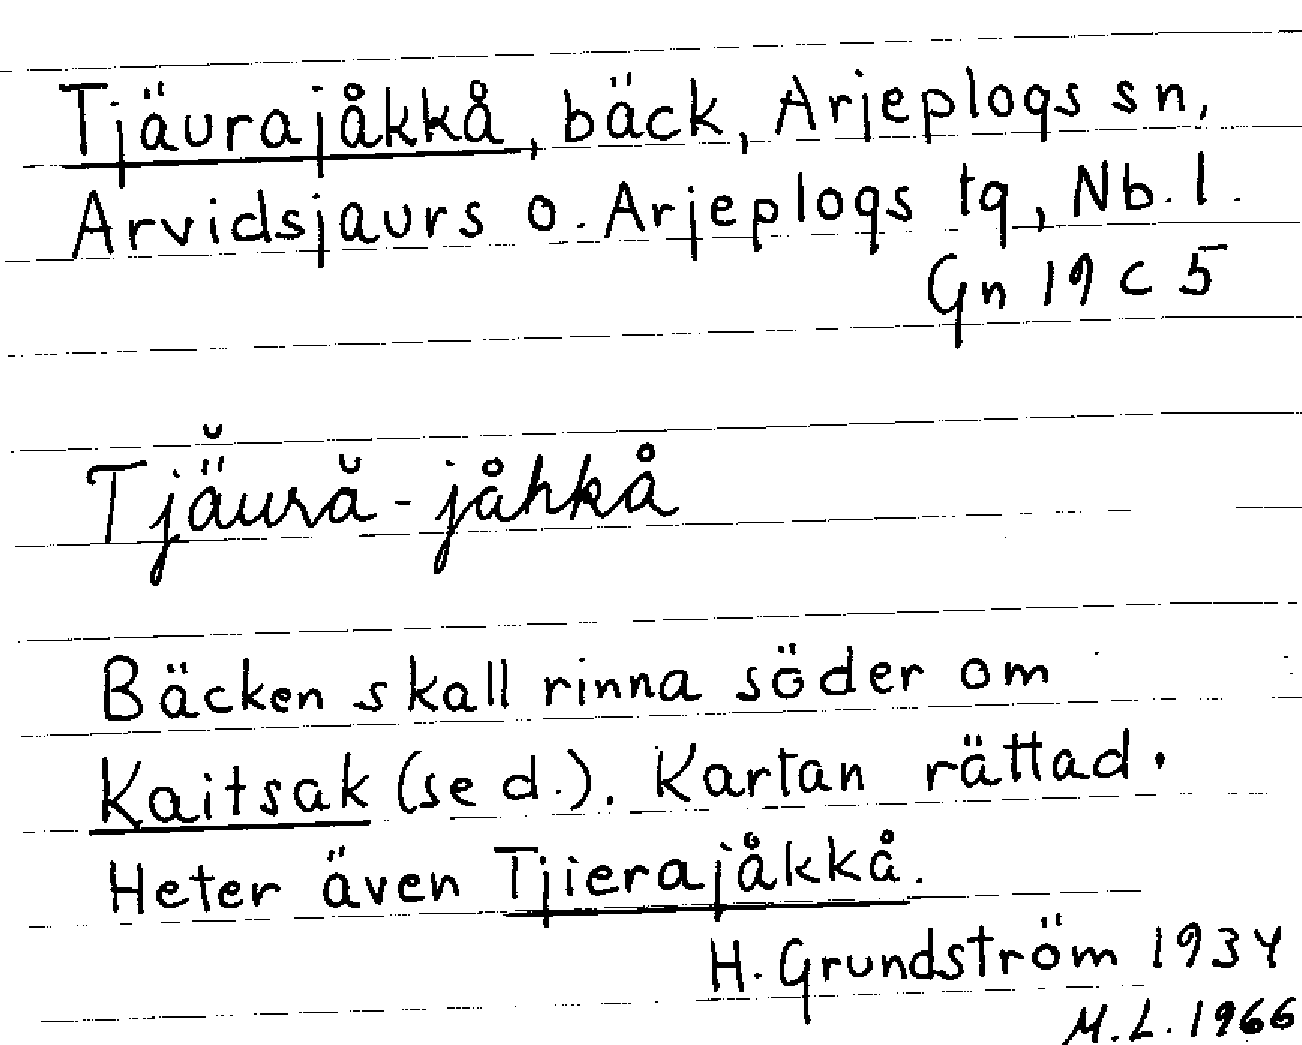 Tjäurajåkkå, bäck, Arjeplogs sn,
Arvidsjaurs o. Arjeplogs tg, Nb. l.
Gn 19 c 5
Tjä̆ură-jåhkå
Bäcken skall rinna söder om
Kaitsak (se d.). Kartan rättad.
Heter även Tjierajåkkå.
H. Grundström 1934
M.L. 1966